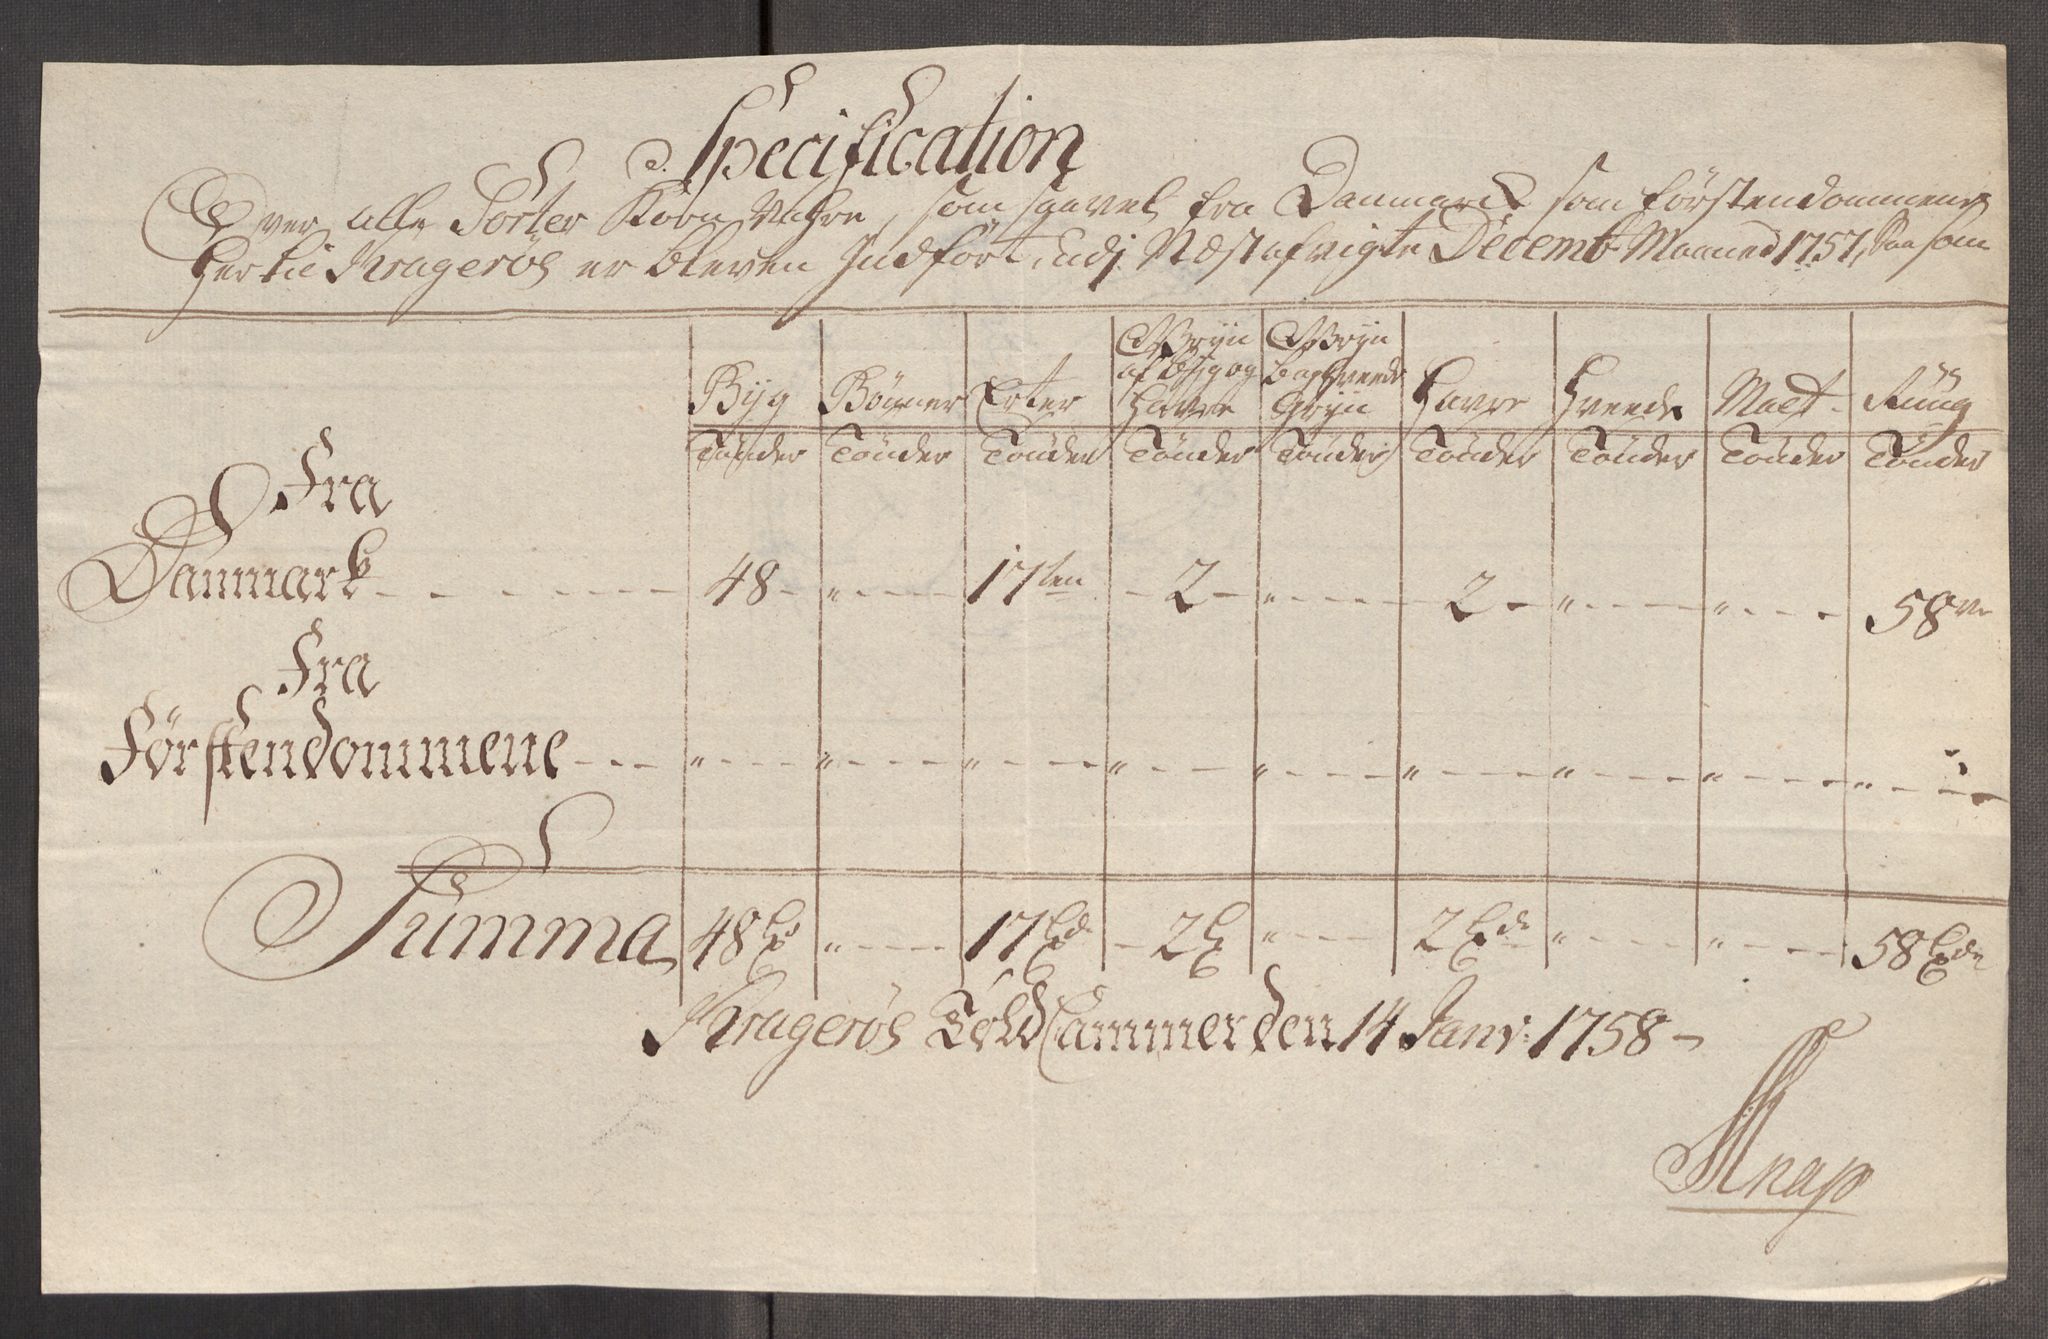 Specification
Over alle Sorter Korn Vahre, som saavel fra Danmarck som Förstendommene
her til Kragerös er bleven Indfört, udj Næstafvigte Decemb: Maaned 1757, Saasom
Byg Bönner Erter Gryn af Byg og Havre Gryn Boghveede Gryn Havre Hveede Malt Rüug
Tönder Tönder Tönder Tönder Tönder Tönder Tönder Tönder Tönder
Fra
Danmark - - - - 48 - " - - - 17 - 2 - " - - - 2 - " - - - " - - - 58
Fra
Förstendommene - - - " - - - " - - - " - - - " - - - " - - - " - - - " - - - " - - - " - - -
Summa 48 " - - - 17 - 2 " - - - 2 " - - - " - - - 58
Kragerös Told Cammer den 14 Janv: 1758 -
Knap